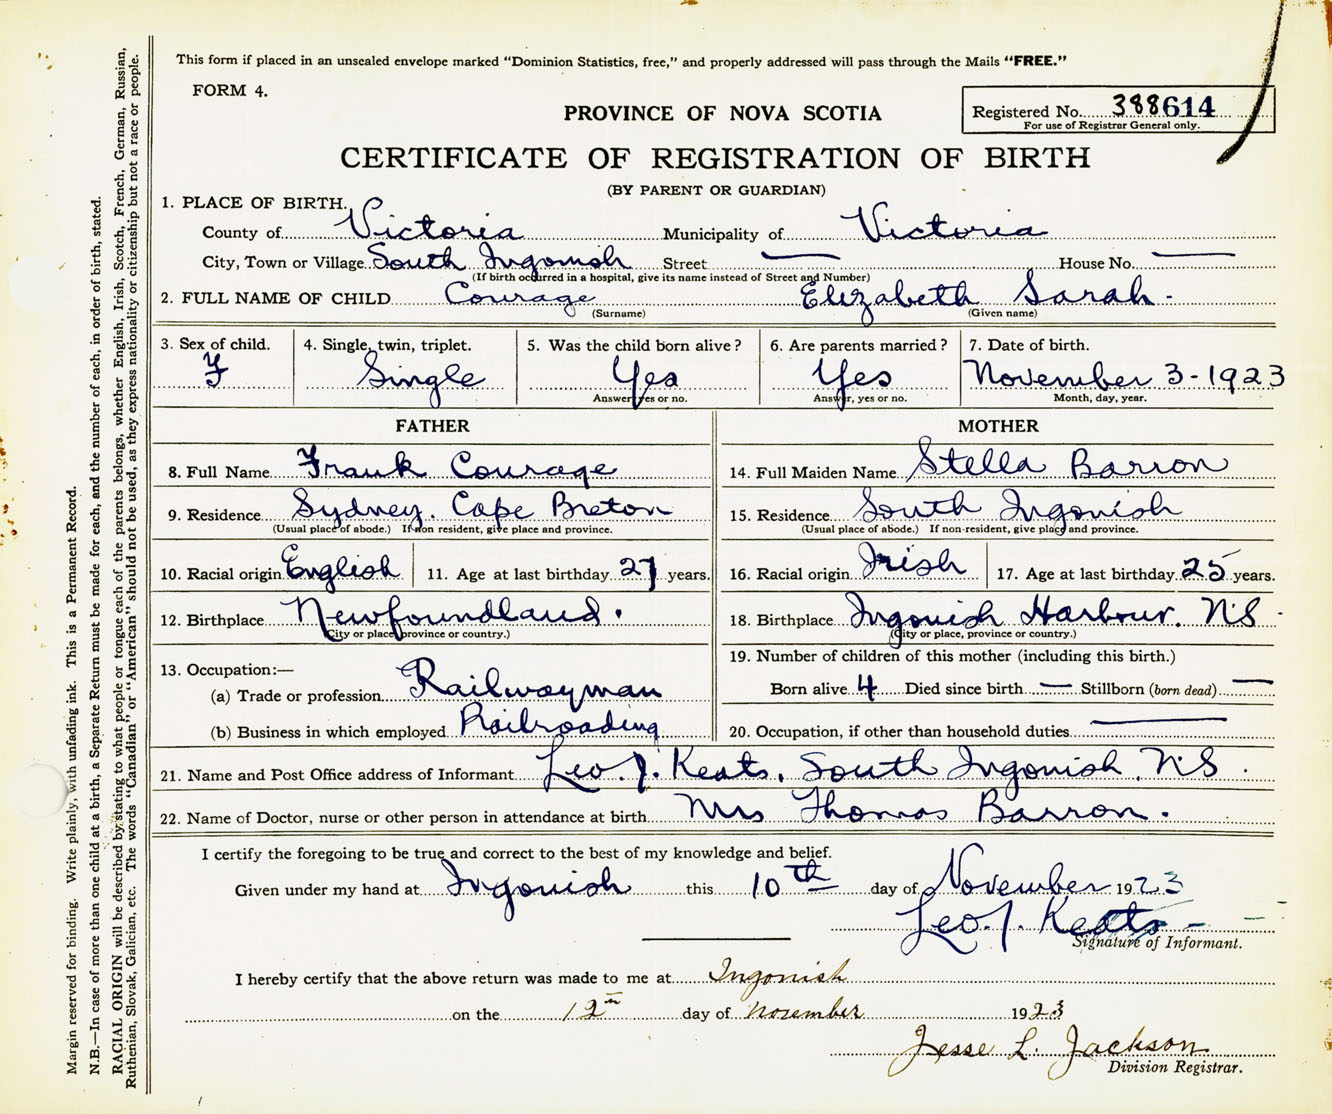 This form if placed in an unsealed envelope marked "Dominion Statistics, free," and properly addressed will pass through the Mails "FREE."
FORM 4.
PROVINCE OF NOVA SCOTIA
Registered No. 388614
For use of Registrar General only.
CERTIFICATE OF REGISTRATION OF BIRTH
(BY PARENT OR GUARDIAN)
1. PLACE OF BIRTH.
County of Victoria Municipality of Victoria
City, Town or Village South Ingonish Street — House No. —
(If birth occurred in a hospital, give its name instead of Street and Number)
2. FULL NAME OF CHILD Courage Elizabeth Sarah.
(Surname) (Given name)
3. Sex of child. 4. Single, twin, triplet. 5. Was the child born alive? 6. Are parents married? 7. Date of birth.
F Single Yes Yes November 3-1923
Answer, yes or no. Answer, yes or no. Month, day, year.
FATHER MOTHER
8. Full Name Frank Courage 14. Full Maiden Name Stella Barron
9. Residence Sydney. Cape Breton 15. Residence South Ingonish
(Usual place of abode.) If non resident, give place and province. (Usual place of abode.) If non-resident, give place and province.
10. Racial origin English 11. Age at last birthday 27 years. 16. Racial origin Irish 17. Age at last birthday 25 years.
12. Birthplace Newfoundland. 18. Birthplace Ingonish Harbour. N.S
(City or place, province or country.) (City or place, province or country.)
13. Occupation:— 19. Number of children of this mother (including this birth.)
(a) Trade or profession Railwayman Born alive 4 Died since birth — Stillborn (born dead) —
(b) Business in which employed Railroading 20. Occupation, if other than household duties —
21. Name and Post Office address of Informant Leo. J. Keats, South Ingonish, N.S.
22. Name of Doctor, nurse or other person in attendance at birth Mrs Thomas Barron.
I certify the foregoing to be true and correct to the best of my knowledge and belief.
Given under my hand at Ingonish this 10th day of November 1923
Leo. J. Keats
Signature of Informant.
I hereby certify that the above return was made to me at Ingonish
on the 12th day of November 1923
Jesse L. Jackson
Division Registrar.
Margin reserved for binding. Write plainly, with unfading ink. This is a Permanent Record.
N.B.—In case of more than one child at a birth, a Separate Return must be made for each, and the number of each, in order of birth, stated.
RACIAL ORIGIN will be described by stating to what people or tongue each of the parents belongs, whether English, Irish, Scotch, French, German, Russian,
Ruthenian, Slovak, Galician, etc. The words "Canadian" or "American" should not be used, as they express nationality or citizenship but not a race or people.